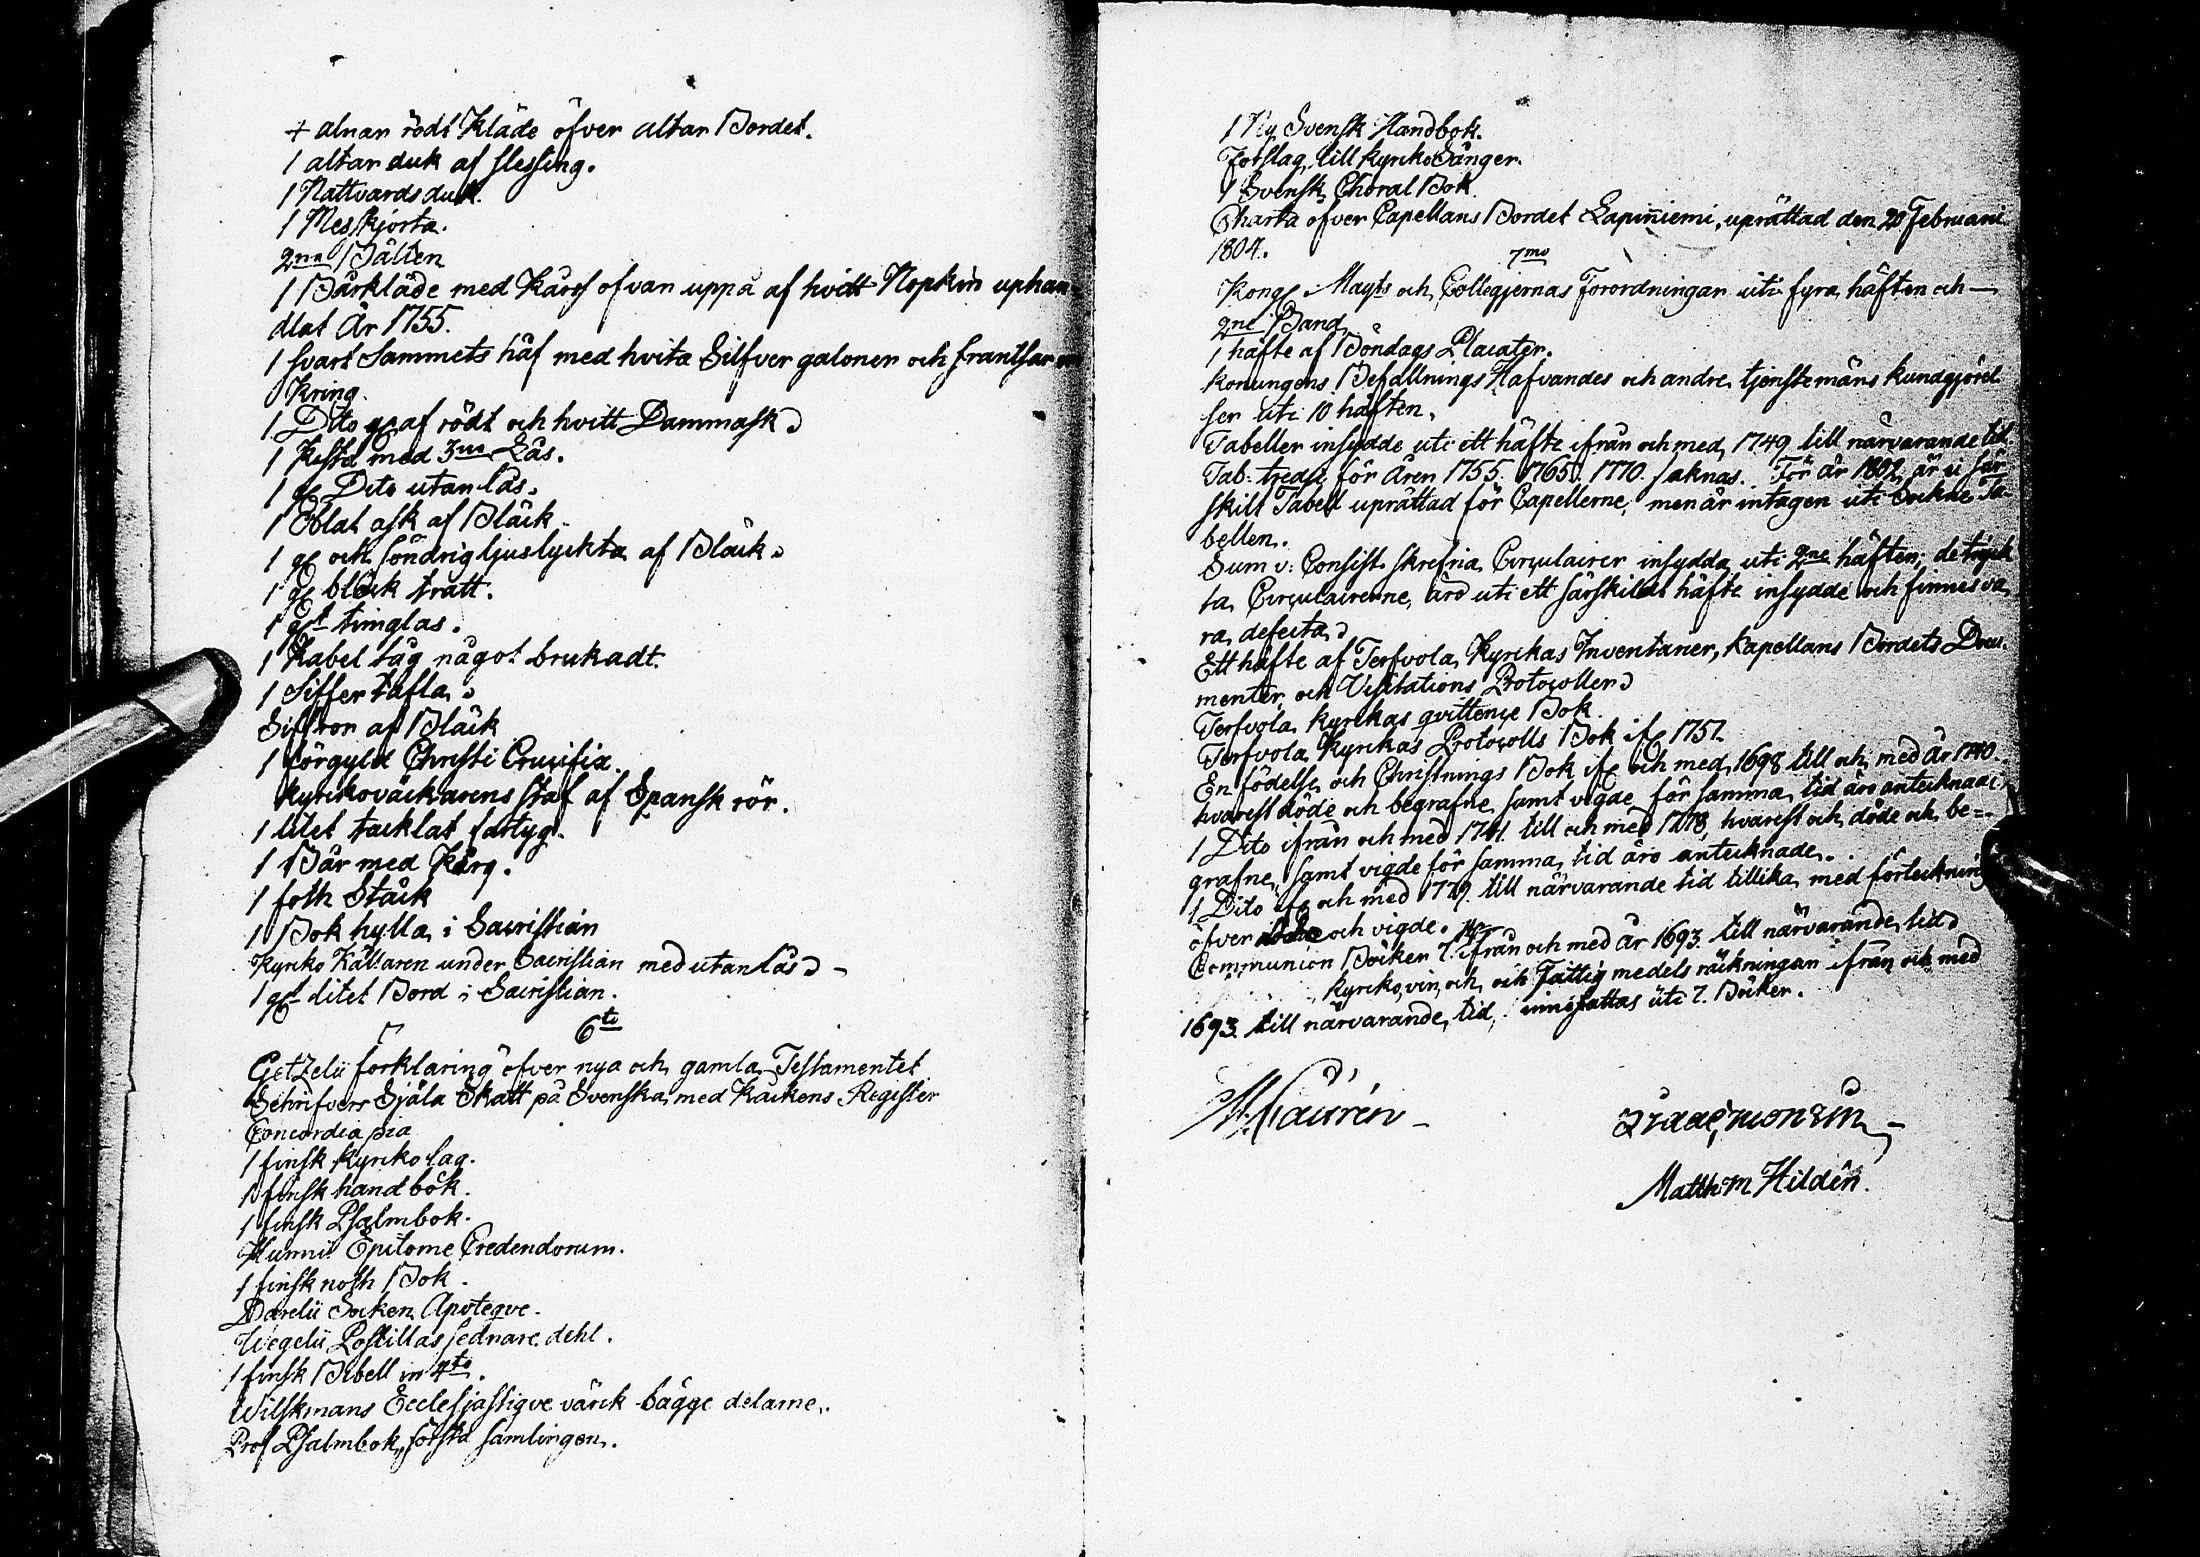 4 alnar rödt Kläde öfver altar Bordet.
1 altar duk af slessing.
1 Nattvards duk.
1 Messkjorta.
2ne Bälten
1 Bårkläde med Kårss ofvan uppå af hvitt Nopkin uphan-
dlat År 1755.
1 svart Sammets håf med hvita Silfver galoner och frantsar om
kring.
1 Dito gl af rödt och hvitt Dammask
1 Kista med 3ne Lås.
1 gl Dito utan lås.
1 Oblat ask af Bläck.
1 gl och söndrig ljuslyckta af Bläck.
1 gl bläck tratt.
1 glt timglas.
1 Kabel tåg något brukadt.
1 Siffer tafla.
Siffror af Bläck
1 förgyld Christi Crucifix.
Kyrkoväckarens staf af Spansk rör.
1 litet tacklat fartyg.
1 Bår med Kårg.
1 foth Ståck
1 Bok hylla i Sacristian
Kyrko Källaren under Sacristian med utan lås -
1 glt litet Bord i Sacristian.
6to
Getzelii förklaring öfver nya och gamla Testamentet
Schrifvers Själa Skatt på Svenska med Kackens Register
Concordia pia
1 finsk kyrko lag.
1 finsk handbok.
1 finsk Psalmbok.
Hunnii Epitome Credendorum.
1 finsk noth Bok.
Darelii Socken Apoteqve.
Wegelii Postillas sednare dehl.
1 finsk Bibell in 4to.
Wilskmans Ecclesjastiqve värck bägge delarne.
Prof Psalmbok, första samlingen.
1 Ny Svensk Handbok.
Förslag till kyrko Sånger.
1 Svensk Choral Bok.
Charta öfver Capellans Bordet Lapinniemi, uprättad den 20 Februarii
1804.
7mo
Kongl Mayts och Collegiernas Förordningar uti fyra häften och
2ne Band
1 häfte af Böndags Placater.
Konungens Befallnings Hafvandes och andre tjenstemäns kundgjörel-
ser uti 10 häften.
Tabeller insydde uti ett häfte ifrån och med 1749 till närvarande tid.
Tab: tredje för Åren 1755. 1765. 1770. saknas. För år 1802 är ei sär
skilt Tabell uprättad för Capellerne, men är intagen uti Sockne Ta-
bellen.
Sum v: Consist. skrefna Circulairer insydda uti 2ne häften; de tryck
ta Circulairerne äro uti ett särskildt häfte insydde och finnes va
ra defecta
Ett häfte af Terfvola Kyrckas Inventarier, Kapellans Bordets Docu-
menter och Visitations Protocoller
Terfvola kyrckas qvittence Bok.
Terfvola Kyrckas Protocolls Bok ifr 1757.
En födelse och Christnings Bok ifr och med 1698 till och med År 1740.
hvarest döde och begrafne samt vigde för samma tid äro antecknade
1 Dito ifrån och med 1741 till och med 1778, hvarest och döde och be=
grafne, samt vigde för samma tid äro antecknade.
1 Dito ifr och med 1779 till närvarande tid tillika med förteckning
öfver och vigde.
Communion Böcker 7. ifrån och med år 1693. till närvarande tid
kyrko, vin, och och Fattig medels räkningar ifrån och med
1693 till närvarande tid, innefattas uti 7. Böcker.
M. Laurén
Matth: M. Hildén.